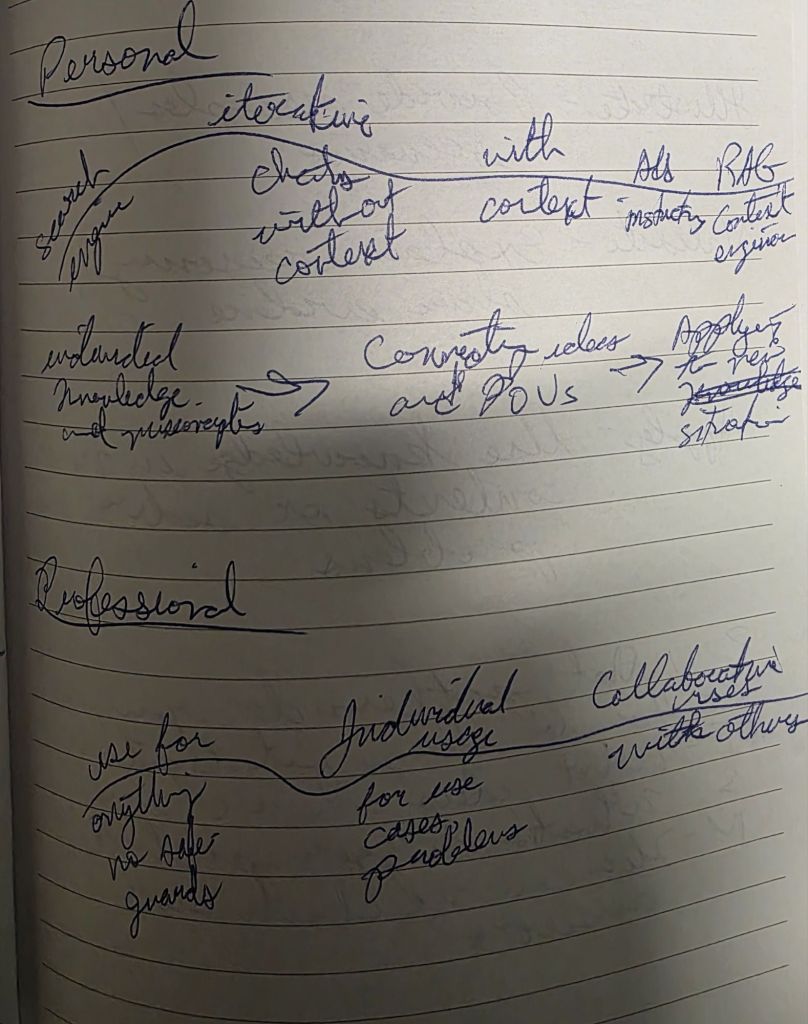 Personal
iterative
search
engine
chats
without
context
with
context
Ads
RAG
Context
knowledge
and
Connecting ideas
and POUs
Applying
to new
situation
Professional
use for
anything
no safe-
guards
Individual
usage
for use
cases,
problems
Collaborative
uses
with others